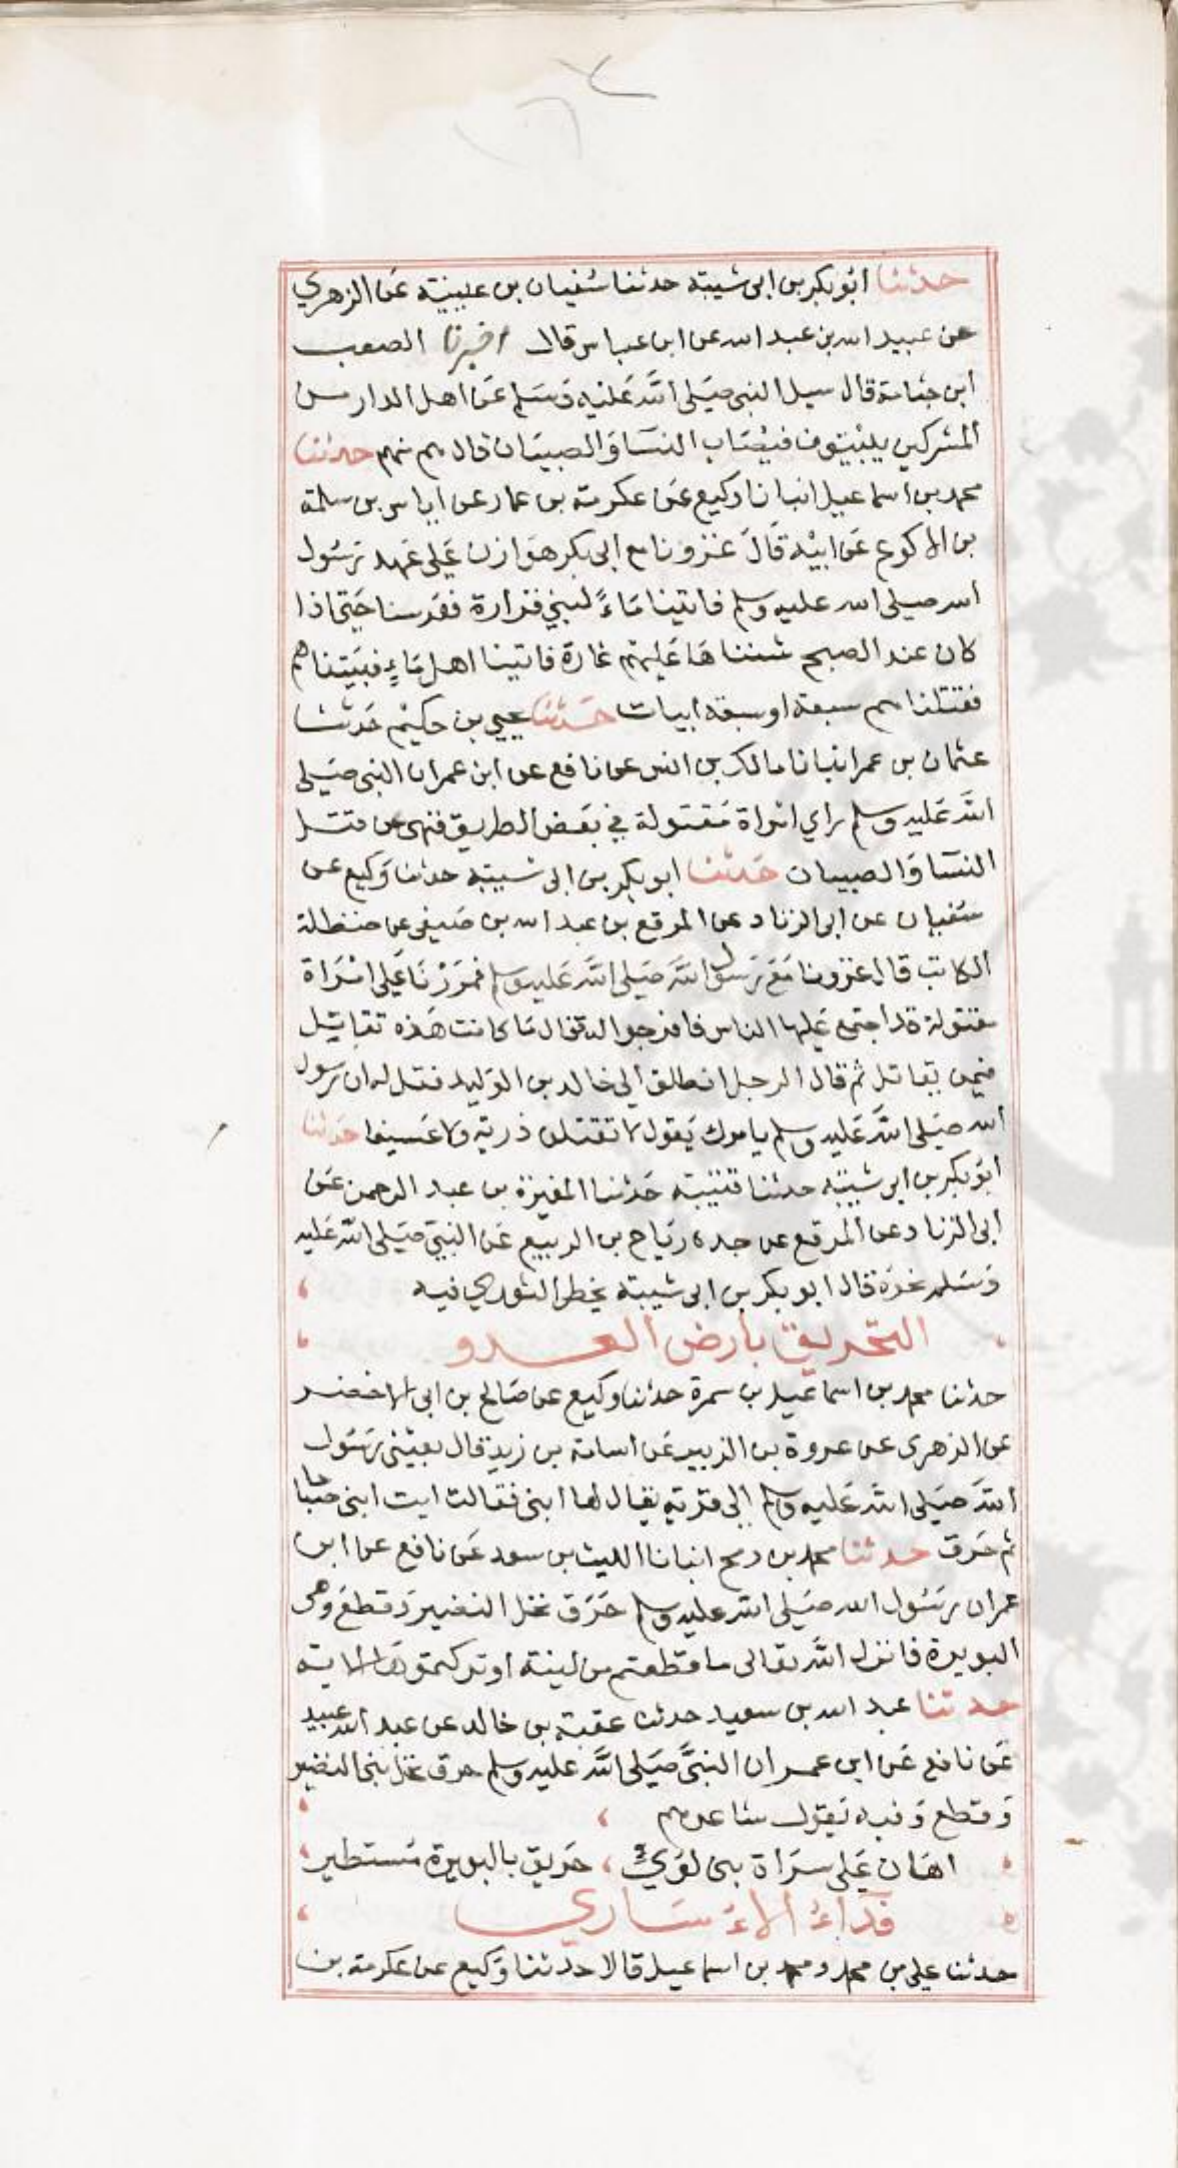 حدثنا ابو بكر بن ابى شيبة حدثنا سُفيان بن عيينة عَن الزهري
عن عبيد الله بن عبد الله عن ابن عباس قال اخبرنا الصعب
ابن جثامة قال سيل النبى صَلى الله عَليه وَسَلم عَن اهل الدار من
المشركين يبيتون فيصَاب النسَا وَالصبيَان قال هم منهم حدثنا
محمد بن اسماعيل انبانا وكيع عَن عكرمة بن عمار عن اياس بن سلمة
بن الاكوع عَن ابيْه قَالَ غزونا مع ابى بكر هوَازن عَلى عَهد رَسُول
الله صلى الله عليه وسلم فاتينا مَاءً لبني فزارة فعَرسنا حَتى اذا
كان عند الصبح شنناهَا عَليهم غارَة فاتينا اهل مَاءٍ فبَيتناهم
فقتلناهم سبعة او سبعة ابيات حَدثنا يحيى بن حكيْم حَدثنا
عثمان بن عمر انبانا مالك بن انس عن نافع عن ابن عمر ان النبى صَلى
الله عَليه وسلم راي امرَاة مَقتولة في بعَض الطريق فنهى عن قتل
النسَا وَالصبيان حَدثنا ابو بكر بن ابى شيبة حدثنا وَكيع عن
سُفيان عن ابى الزناد عن المرقع بن عبد الله بن صَيفى عن حنظلة
الكاتب قال غزونا مَعَ رَسول الله صَلى الله عَليه وسلم فمرَرْنا عَلى امْرَاة
مقتولة قد اجتمع عَليها الناس فافرجوا له فقال مَا كانت هَذه تقاتل
فيمن يقاتل ثم قال الرجل انطلق الى خالد بن الوَليد فقل له ان رسول
الله صَلى الله عَليه وسلم يامرك يَقول لا تقتلن ذرية ولا عَسيفا حَدثنا
ابو بكر بن ابى شيبَة حدثنا قتيبة حَدثنا المغيرَة بن عبد الرحمن عَن
ابى الزناد عن المرقع عن جده رَباح بن الربيع عَن النبي صَلى الله عَليه
وَسَلم نحوَه قال ابو بكر بن ابى شيبة يخطى الثوري فيه
التحريق بارض العدو
حدثنا محمد بن اسماعيل بن سمرة حدثنا وكيع عن صَالح بن ابى الاخضر
عن الزهرى عن عروة بن الزبير عَن اسامة بن زيد قال بعثنى رَسُول
الله صَلى الله عَليه وسلم الى قرية يقال لها ابنى فقالت ايت ابنى صَبَاحا
ثم حَرق حدثنا محمد بن رمح انبانا الليث بن سعد عَن نافع عن ابن
عمر ان رَسُول الله صَلى الله عليه وسلم حَرَق نخل النضير وَقطعَ وَهى
البويرة فانزل الله تعَالى ما قطعتم من لينة او تركتموهَا الاية
حدثنا عبد الله بن سعيد حدثنا عقبة بن خالد عن عبد الله عبيد
عَن نافع عَن ابن عمر ان النبيَّ صَلى الله عليه وسلم حرق نخل بنى النضير
وَقطع وَفيه يَقول شاعرهم
اهَان عَلى سرَاة بنى لوَي ، حَريق بالبويرة مُستطير
فدَاءُ الاُسَاري
حدثنا على بن محمد ومحمد بن اسماعيل قالا حدثنا وَكيع عن عكرمة بن